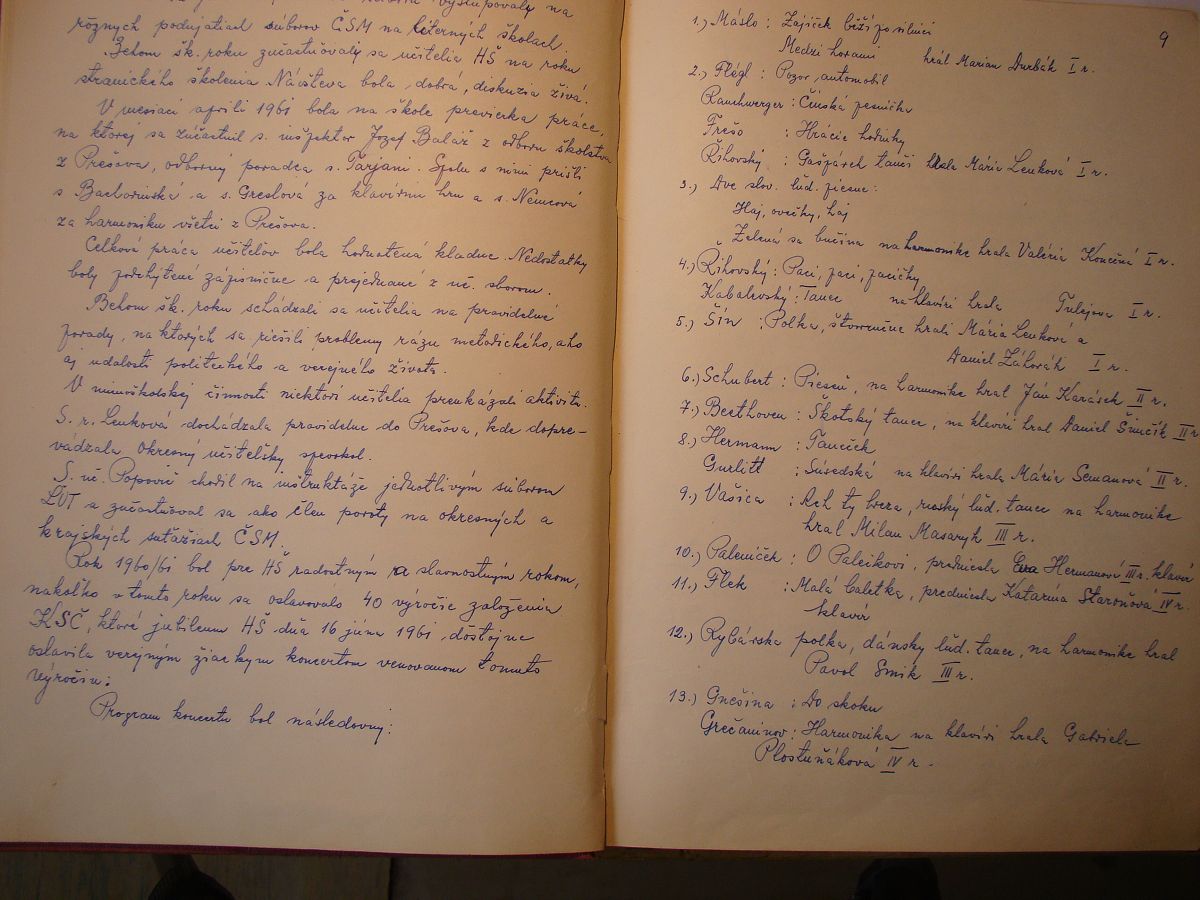 vystupovaly na
rôznych podujatiach súborov ČSM na literných školach.
Behom šk. roku zučastňovaly sa učitelia HŠ na roku
stranického školenia. Násteva bola dobrá, diskuzia živá.
V mesiaci apríli 1961 bola na škole previerka práce,
na ktorej sa zúčastnil s. inšpektor Jozef Baláž z odboru školstva
z Prešova, odborný poradca s. Tarjani. Spolu s nimi prišli
s. Bachorinská a s. Greslová za klavírnu hru a s. Nemcová
za harmoniku všetci z Prešova.
Celková práca učiteľov bola hodnotená kladne. Nedostatky
boly podchýtené zápisnične a prejednané z uč. sborom.
Behom šk. roku schádzali sa učitelia na pravidelné
porady, na ktorých sa riešili problemy rázu metodického, ako
aj udalosti politického a verejného života.
V mimoškolskej činnosti niektorí učitelia preukázali aktivitu.
S. r. Lenková dochádzala pravidelne do Prešova, kde dopre-
vádzala Okresný učiteľský spevokol.
S. uč. Popovič chodil na inštruktáže jednotlivým súborom
LUT a zučastňoval sa ako člen poroty na okresných a
krajských suťažiach ČSM.
Rok 1960/61 bol pre HŠ radostným a slavnostným rokom,
nakoľko v tomto roku sa oslavovalo 40 výročie založenia
KSČ, ktoré jubileum HŠ dňa 16 júna 1961 dôstojne
oslavila verejným žiackym koncertom venovanom tomuto
výročiu.
Program koncertu bol následovný:
9
1.) Máslo : Zajíček běží po silnici
Medzi horami hrál Marian Durbák I r.
2.) Flégl : Pozor, automobil
Rauchwerger : Čínská pesnička
Frešo : Hrácie hodinky
Řihovský : Gašpárek tančí hrala Mária Lenková I r.
3.) Dve slov. ľud. piesne:
Haj, ovečky, haj
Zelená sa bučina na harmonike hrala Valéria Končená I r.
4.) Řihovský : Paci, paci, pacičky
Kabalevský : Tanec na klavíri hrala Tulejova I r.
5.) Šín : Polka, štvorručne hrali Mária Lenková a
Daniel Záhorák I r.
6.) Schubert : Pieseň, na harmonike hral Ján Karásch II r.
7.) Beethoven : Škotský tanec, na klavíri hral Daniel Šimčík II r
8.) Hermann : Taneček
Gurlitt : Súsedská na klavíri hrala Mária Semanová II r.
9.) Vašica : Ach ty breza, ruský ľud. tanec na harmonike
hral Milan Masaryk III r.
10.) Paleníček : O Palečkovi, predniesla Eva Hermanová III r. klavír
11.) Flek : Malá baletka, predniesla Katarína Staroňová IV r.
klavír
12.) Rybárska polka, dánsky ľud. tanec, na harmonike hral
Pavol Smik III r.
13.) Gnešina : Do skoku
Grečaninov : Harmonika na klavíri hrala Gabriela
Plostuňáková IV r.